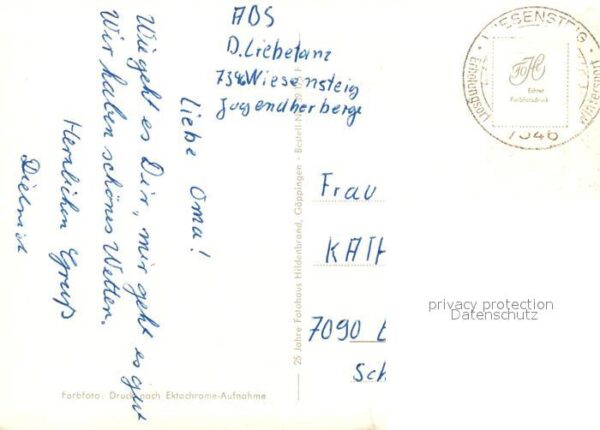 ADS
D. Liebetanz
7346 Wiesensteig
Jugendherberge
Liebe Oma!
Wie geht es Dir, mir geht es gut
Wir haben schönes Wetter.
Herzlichen Gruß
Dietmar
WIESENSTEIG
Erholungsort
Wintersport
7346
FHG
Echter
Farbfotodruck
25 Jahre Fotohaus Hildenbrand, Göppingen - Bestell Nr.
Frau
KATH
7090
Sch
privacy protection
Datenschutz
Farbfoto: Druck nach Ektachrome-Aufnahme